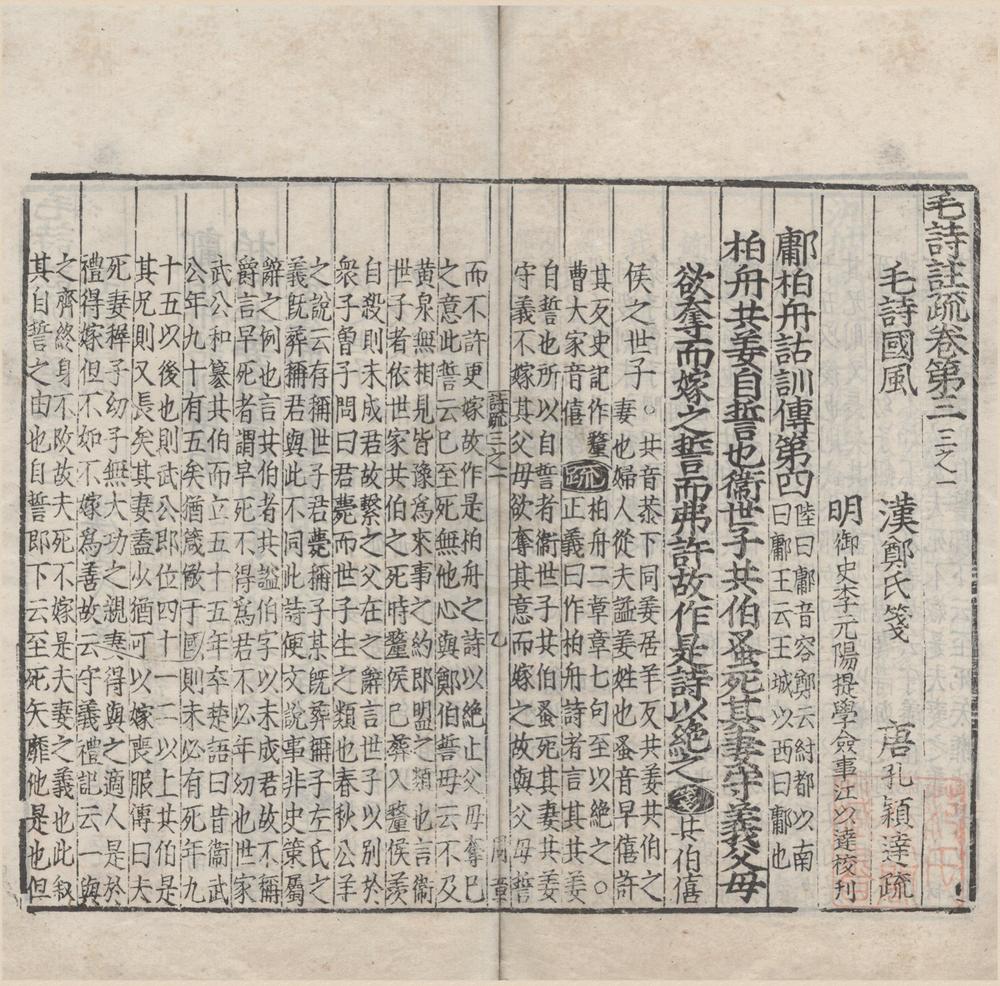 毛詩註疏卷第三 三之一
毛詩國風 漢鄭氏箋 唐孔穎達疏
明御史李元陽提學僉事江以達校刊
鄘柏舟詁訓傳第四 陸曰鄘音容鄭云紂都以南
曰鄘王云王城以西曰鄘也
柏舟共姜自誓也衞世子共伯蚤死其妻守義父母
欲奪而嫁之誓而弗許故作是詩以絶之 箋 共伯僖
侯之世子○共音恭下同姜居羊反共姜共伯之
妻也婦人從夫謚姜姓也蚤音早僖許
其反史記作釐
曹大家音僖 疏 柏舟二章章七句至以絶之○
正義曰作柏舟詩者言其共姜
自誓也所以自誓者衞世子共伯蚤死其妻共姜
守義不嫁其父母欲奪其意而嫁之故與父母誓
詩疏三之一 乙 周章
而不許更嫁故作是柏舟之詩以絶止父母奪已
之意此誓云已至死無他心與鄭伯誓母云不及
黃泉無相見皆豫爲來事之約即盟之類也言衞
世子者依世家共伯之死時釐侯已葬入釐侯羨
自殺則未成君故繫之父在之辭言世子以別於
衆子曾子問曰君薨而世子生之類也春秋公羊
之說云存稱世子君薨稱子某旣葬稱子左氏之
義旣葬稱君與此不同此詩便文說事非史策屬
辭之例也言共伯者共謚伯字以未成君故不稱
爵言早死者謂早死不得爲君不必年幼也世家
武公和簒共伯而立五十五年卒楚語曰昔衞武
公年九十有五矣猶箴儆于國則未必有死年九
十五以後也則武公即位四十一二以上共伯是
其兄則又長矣其妻蓋少猶可以嫁喪服傳曰夫
死妻稺子幼子無大功之親妻得與之適人是於
禮得嫁但不如不嫁爲善故云守義禮記云一與
之齊終身不改故夫死不嫁是夫妻之義也此敘
其自誓之由也自誓即下云至死矢靡他是也但